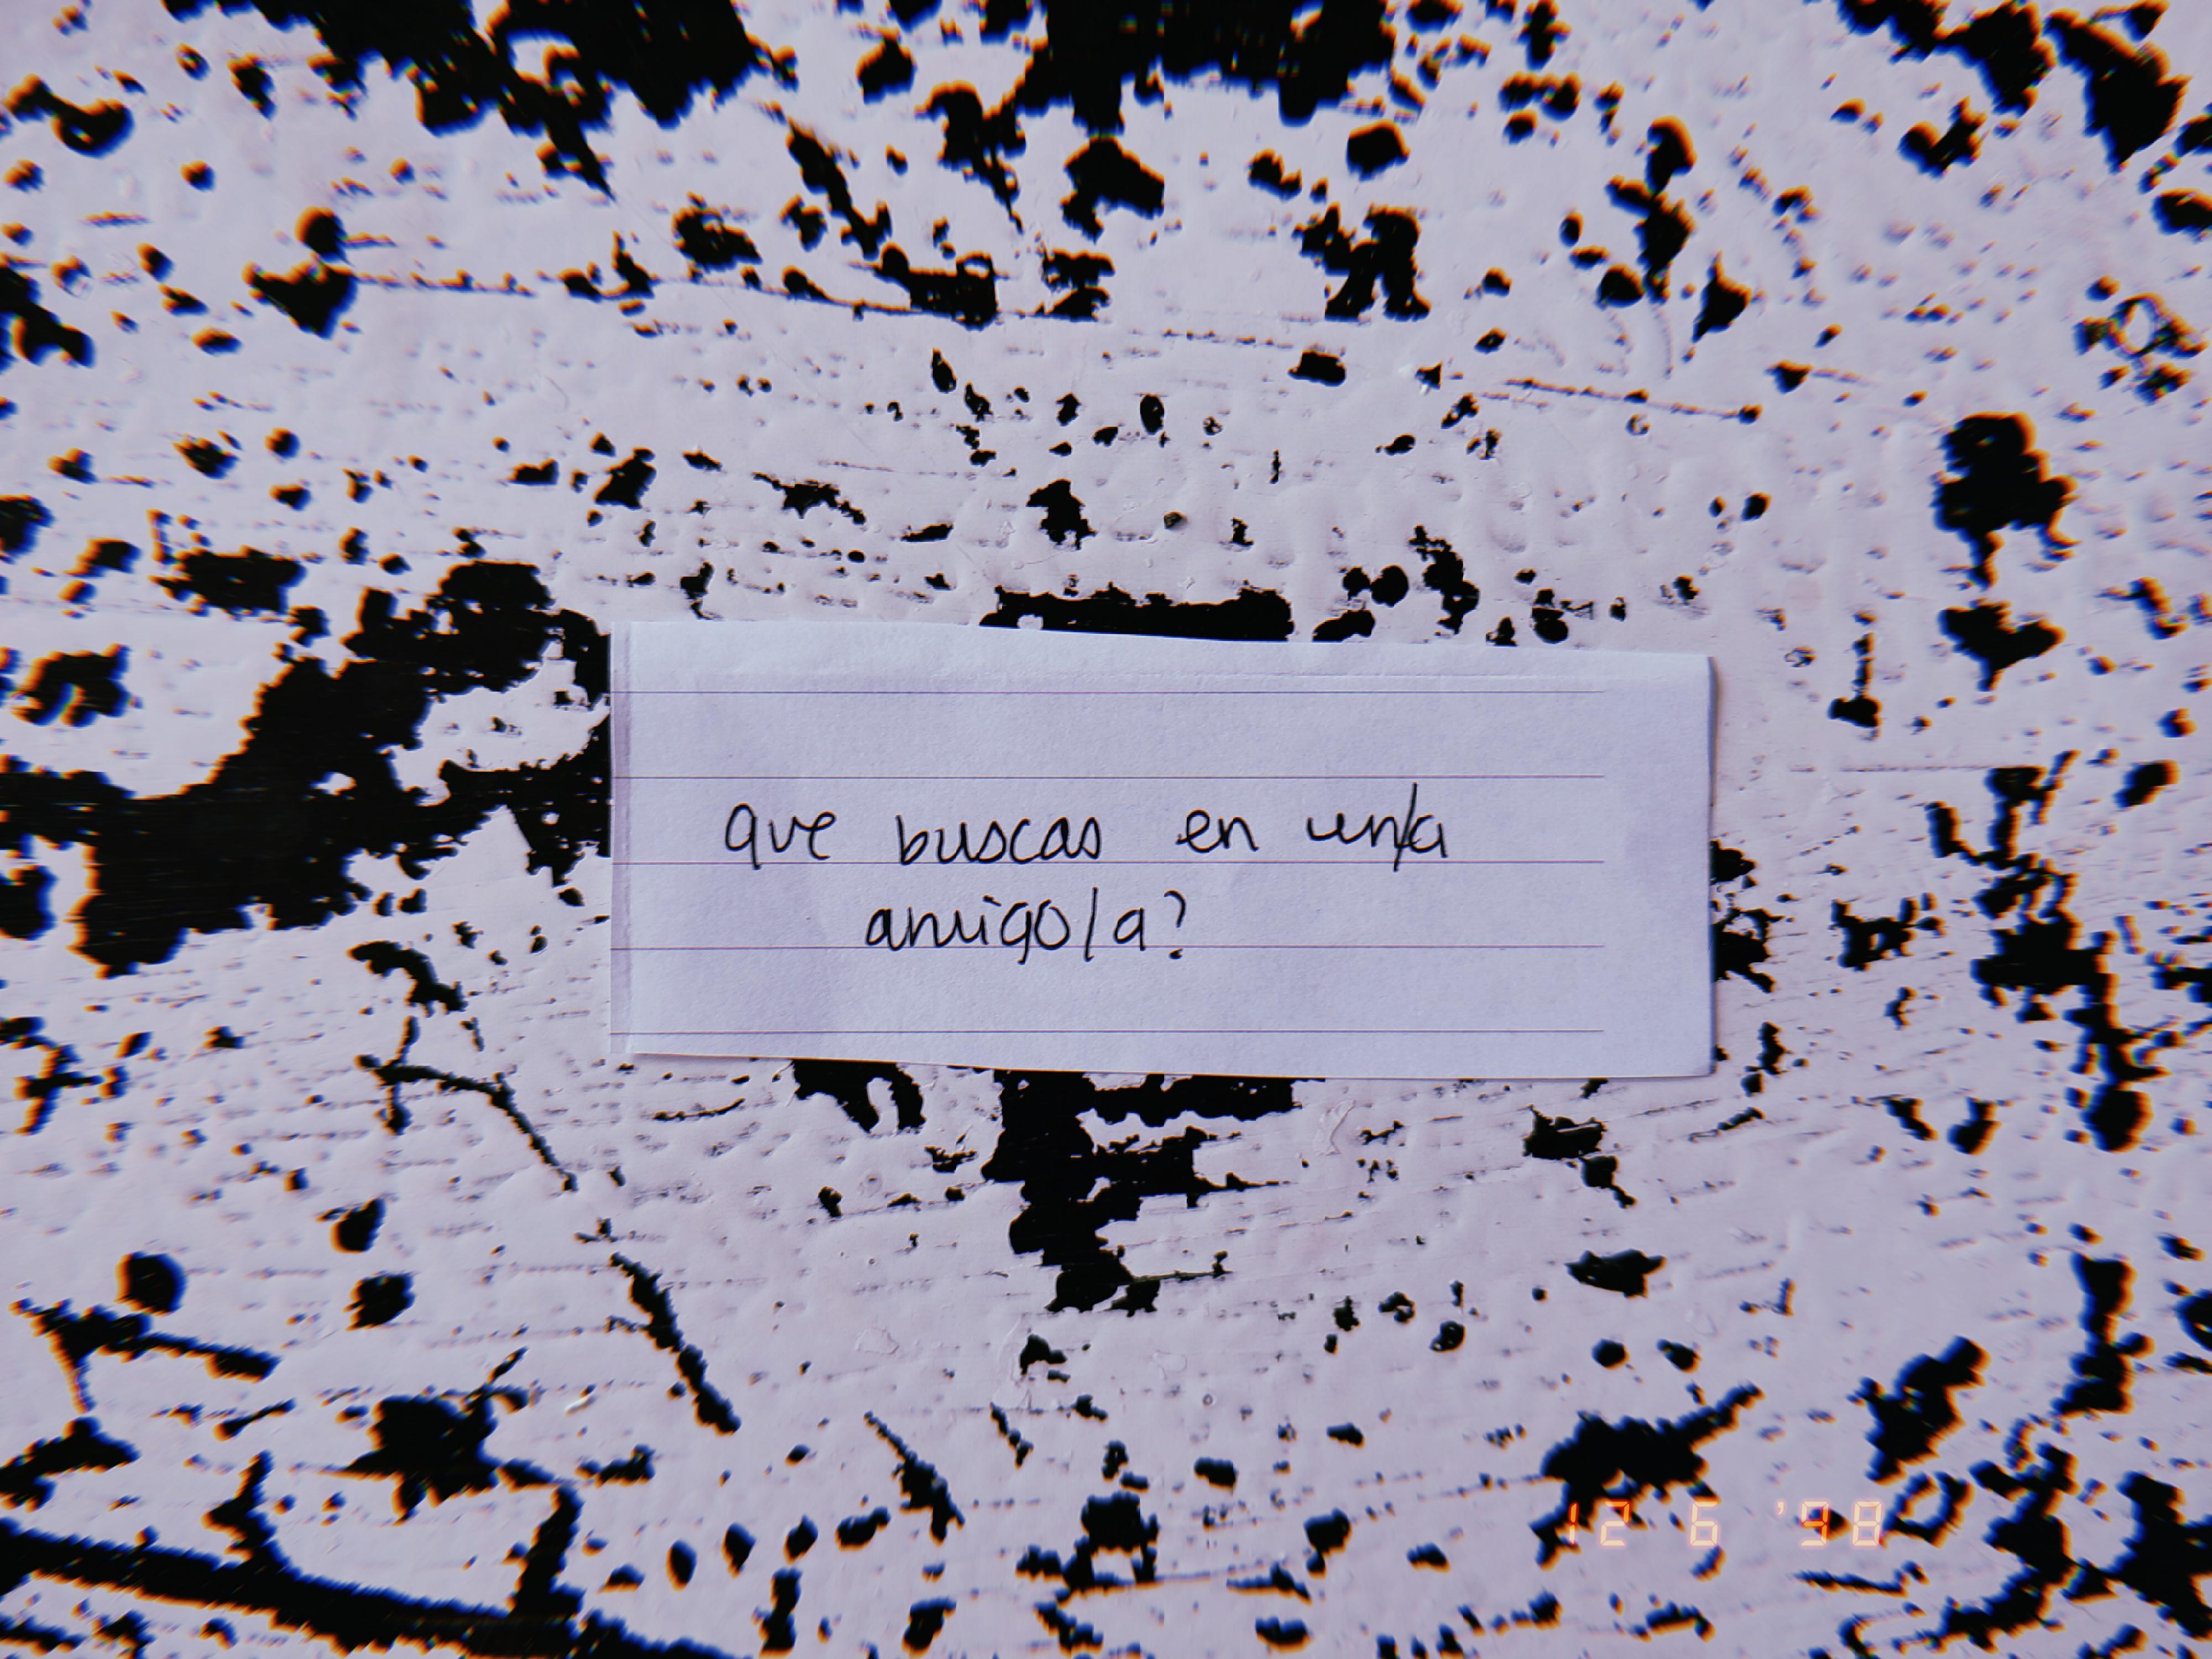 que buscas en un/a
amigo/a?
12 6 '98